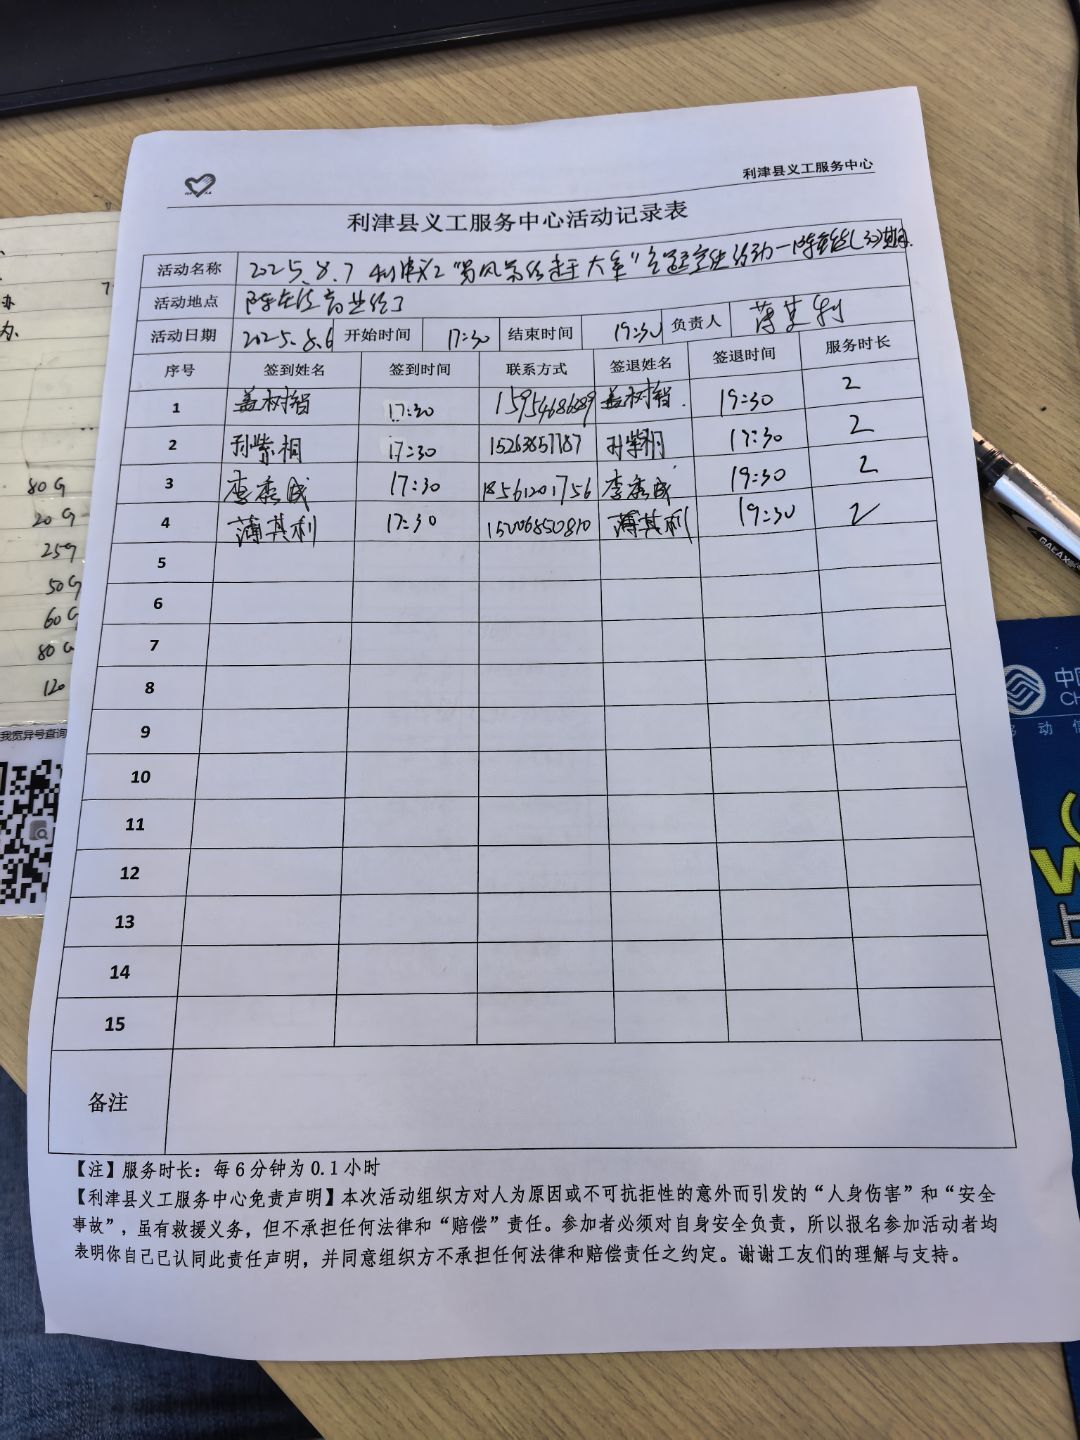 利津县义工服务中心
利津县义工服务中心活动记录表
活动名称 2025.8.7 利津义工
活动地点
活动日期 2025.8.6 开始时间 17:30 结束时间 19:30 负责人 薄其利
序号 签到姓名 签到时间 联系方式 签退姓名 签退时间 服务时长
1 盖树智 17:30 盖树智 19:30 2
2 孙紫桐 17:30 15263857787 孙紫桐 19:30 2
3 李秀成 17:30 18561201756 李秀成 19:30 2
4 薄其利 17:30 薄其利 19:30 2
5
6
7
8
9
10
11
12
13
14
15
备注
【注】服务时长：每6分钟为0.1小时
【利津县义工服务中心免责声明】本次活动组织方对人为原因或不可抗拒性的意外而引发的“人身伤害”和“安全
事故”，虽有救援义务，但不承担任何法律和“赔偿”责任。参加者必须对自身安全负责，所以报名参加活动者均
表明你自己已认同此责任声明，并同意组织方不承担任何法律和赔偿责任之约定。谢谢工友们的理解与支持。
80G
20G
25g
50G
60G
80G
120
我宽异号查询
中国
CH
移动信
W
上